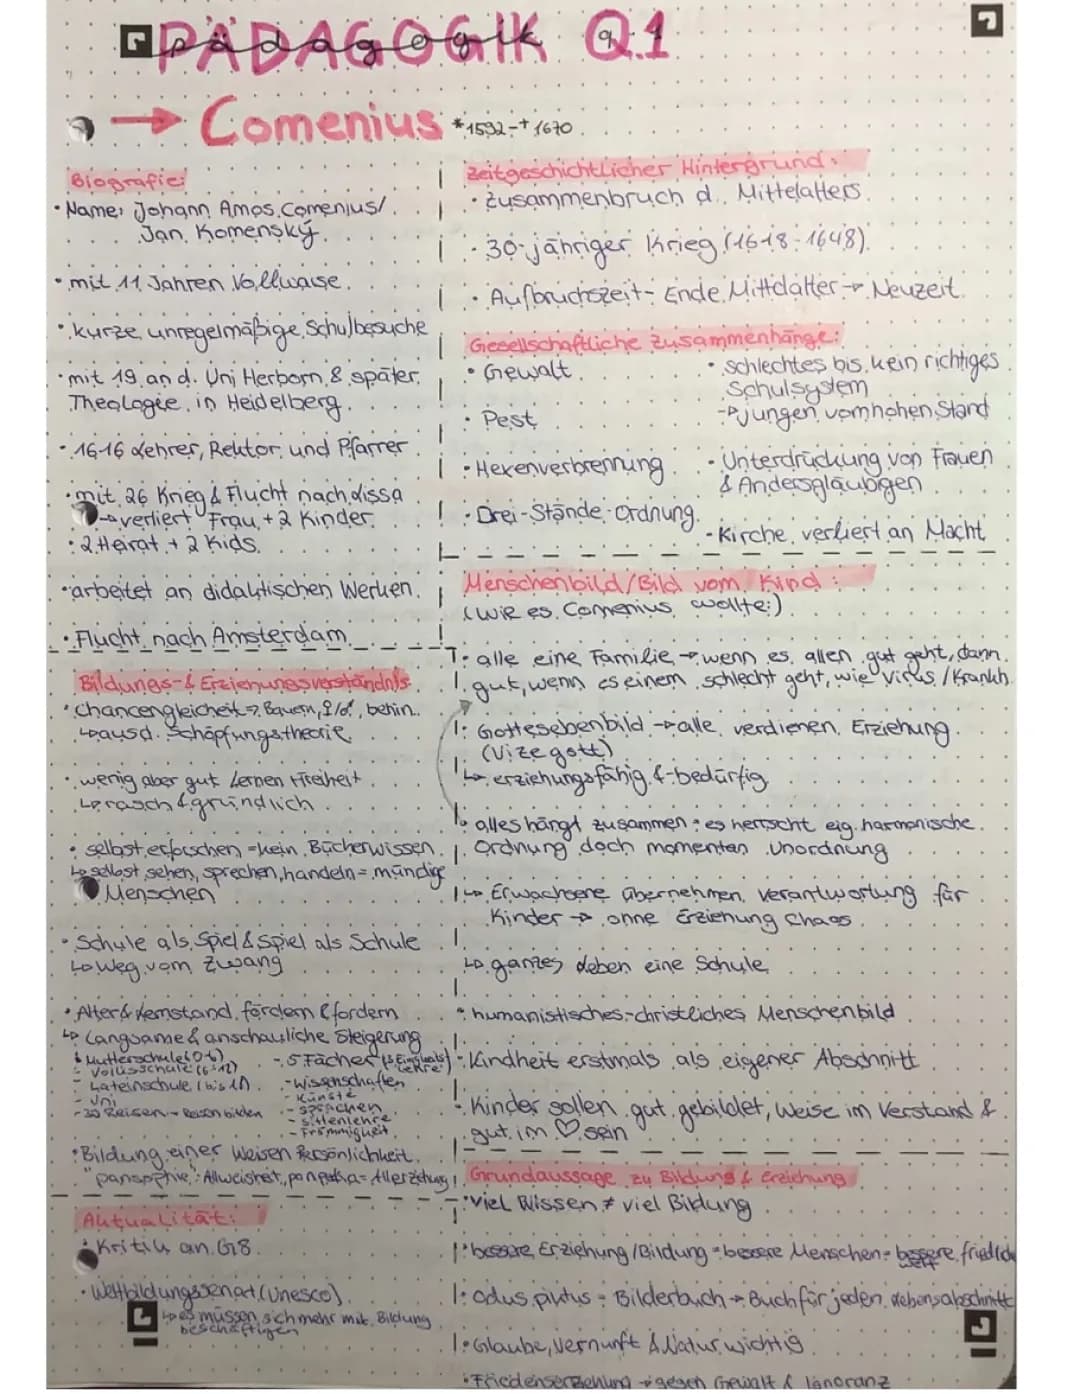 PÄDAGOGIK Q.1
→ Comenius *1592-†1670
Biografie:
• Name: Johann Amos Comenius/
Jan Komenský
• mit 11 Jahren Vollwaise
• kurze unregelmäßige Schulbesuche
• mit 19 an d. Uni Herborn & später
Theologie in Heidelberg
• 1616 Lehrer, Rektor und Pfarrer
• mit 26 Krieg & Flucht nach Lissa
→ verliert Frau + 2 Kinder
• 2. Heirat + 2 Kids
• arbeitet an didaktischen Werken
• Flucht nach Amsterdam
Zeitgeschichtlicher Hintergrund:
• Zusammenbruch d. Mittelalters
• 30-jähriger Krieg (1618-1648)
• Aufbruchszeit - Ende Mittelalter → Neuzeit
Gesellschaftliche Zusammenhänge:
• Gewalt
• Pest
• Hexenverbrennung
• Drei-Stände-Ordnung
• schlechtes bis kein richtiges
Schulsystem
→ jungen vom hohen Stand
• Unterdrückung von Frauen
& Andersgläubigen
• Kirche verliert an Macht
Bildungs- & Erziehungsverständnis
• Chancengleicheit → Bauern, ♀/♂, behin.
↳ aus d. Schöpfungstheorie
• wenig aber gut lernen + Freiheit
↳ rasch & gründlich
• selbst erforschen = kein Bücherwissen
↳ selbst sehen, sprechen, handeln = mündige
Menschen
• Schule als Spiel & Spiel als Schule
↳ Weg vom Zwang
• Alter & Lernstand fördern & fordern
↳ Langsame & anschauliche Steigerung
Mutterschule (0-6)
- Volksschule (6-12)
- Lateinschule (bis 18)
- Uni
- 30 Reisen → Reisen bilden
- 5 Fächer
- Wissenschaften
- Künste
- Sprachen
- Sittenlehre
- Frömmigkeit
• Bildung einer Weisen Persönlichkeit
"pansophie": Allweisheit, = Allerziehung
Aktualität:
• Kritik an G8
• Weltbildungssenat (Unesco)
↳ es müssen sich mehr mit Bildung
beschäftigen
Menschenbild/Bild vom Kind:
(wie es Comenius wollte:)
• alle eine Familie → wenn es allen gut geht, dann
gut, wenn es einem schlecht geht, wie Virus/Krankh.
• Gottesebenbild → alle verdienen Erziehung
(Vizegott)
↳ erziehungsfähig & -bedürfig
↳ alles hängt zusammen: es herrscht eig. harmonische
Ordnung doch momentan Unordnung
↳ Erwachsene übernehmen Verantwortung für
Kinder → ohne Erziehung Chaos
↳ ganzes Leben eine Schule
• humanistisches-christliches Menschenbild
• Kindheit erstmals als eigener Abschnitt
• Kinder sollen gut gebildet, Weise im Verstand &
gut im ♡ sein
Grundaussage zu Bildung & Erziehung
• viel Wissen ≠ viel Bildung
• bessere Erziehung/Bildung = bessere Menschen = bessere, friedliche
Welt
• Bilderbuch → Buch für jeden Lebensabschnitt
• Glaube, Vernunft & Natur wichtig
• Friedenserziehung → gegen Gewalt & Ignoranz